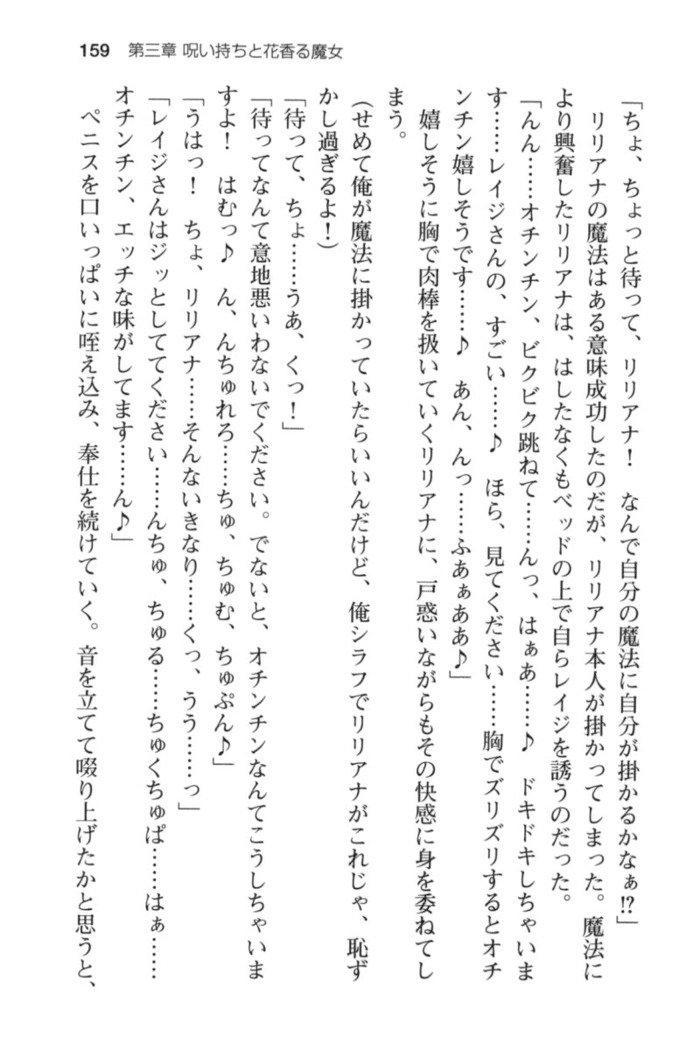 159 第三章 呪い持ちと花香る魔女
「ちょ、ちょっと待って、リリアナ！　なんで自分の魔法に自分が掛かるかなぁ!?」
リリアナの魔法はある意味成功したのだが、リリアナ本人が掛かってしまった。魔法に
より興奮したリリアナは、はしたなくもベッドの上で自らレイジを誘うのだった。
「んん……オチンチン、ビクビク跳ねて……んっ、はぁあ……♪　ドキドキしちゃいま
す……レイジさんの、すごい……♪　ほら、見てください……胸でズリズリするとオチ
ンチン嬉しそうです……♪　あん、んっ……ふあぁああ♪」
嬉しそうに胸で肉棒を扱いていくリリアナに、戸惑いながらもその快感に身を委ねてし
まう。
（せめて俺が魔法に掛かっていたらいいんだけど、俺シラフでリリアナがこれじゃ、恥ず
かし過ぎるよ！）
「待って、ちょ……うあ、くっ！」
「待ってなんて意地悪いわないでください。でないと、オチンチンなんてこうしちゃいま
すよ！　はむっ♪　ん、んちゅれろ……ちゅ、ちゅむ、ちゅぷん♪」
「うはっ！　ちょ、リリアナ……そんないきなり……くっ、うう……っ」
「レイジさんはジッとしててください……んちゅ、ちゅる……ちゅくちゅぱ……はぁ……
オチンチン、エッチな味がしてます……ん♪」
ペニスを口いっぱいに咥え込み、奉仕を続けていく。音を立てて啜り上げたかと思うと、